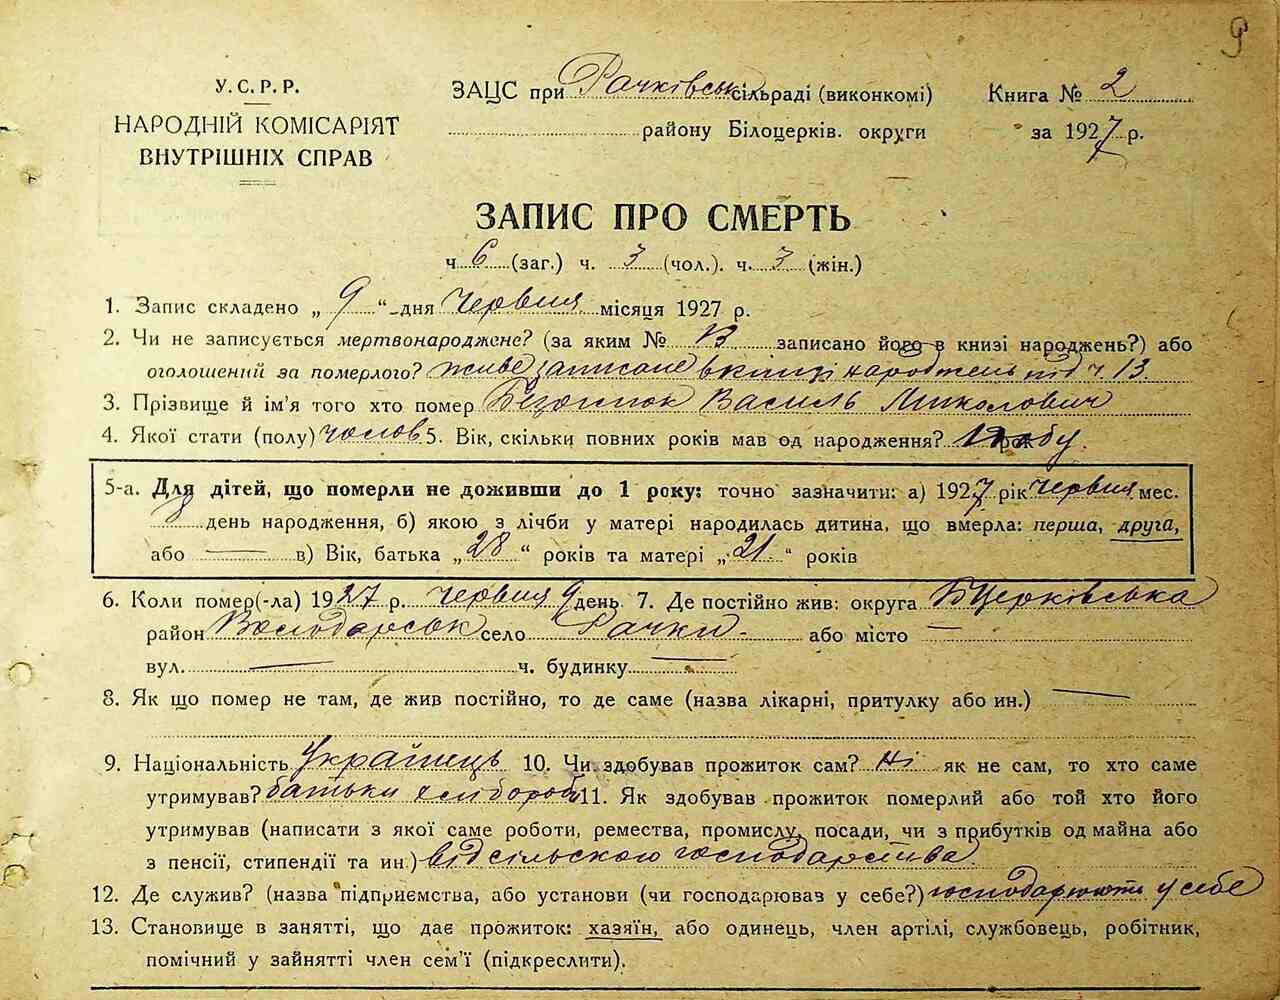 9
У.С.Р.Р.
НАРОДНІЙ КОМІСАРІЯТ
ВНУТРІШНІХ СПРАВ
ЗАЦС при Рачківськ сільраді (виконкомі)
району Білоцерків. округи
Книга № 2
за 1927 р.
ЗАПИС ПРО СМЕРТЬ
ч 6 (заг.) ч. 3 (чол.). ч. 3 (жін.)
1. Запис складено „ 9 “ дня Червня місяця 1927 р.
2. Чи не записується мертвонароджене? (за яким № записано його в книзі народжень?) або
оголошений за померлого? живе записане в книзі народжень під ч. 13.
3. Прізвище й ім'я того хто помер Василь Миколович
4. Якої стати (полу) чолов 5. Вік, скільки повних років мав од народження? добу.
5-а. Для дітей, що померли не доживши до 1 року: точно зазначити: а) 1927 рік Червня мес.
день народження, б) якою з лічби у матері народилась дитина, що вмерла: перша, друга,
або в) Вік, батька „28“ років та матері „21“ років
6. Коли помер(-ла) 1927 р. Червня 9 день. 7. Де постійно жив: округа БЦерківська
район Володарськ село Рачки або місто
вул. ч. будинку
8. Як що помер не там, де жив постійно, то де саме (назва лікарні, притулку або ин.)
9. Національність Українець 10. Чи здобував прожиток сам? Ні як не сам, то хто саме
утримував? батьки хлібороби 11. Як здобував прожиток померлий або той хто його
утримував (написати з якої саме роботи, ремества, промислу, посади, чи з прибутків од майна або
з пенсії, стипендії та ин.) від сільського господарства.
12. Де служив? (назва підприємства, або установи (чи господарював у себе?) господарюють у себе
13. Становище в занятті, що дає прожиток: хазяїн, або одинець, член артілі, службовець, робітник,
помічний у зайнятті член сем'ї (підкреслити).